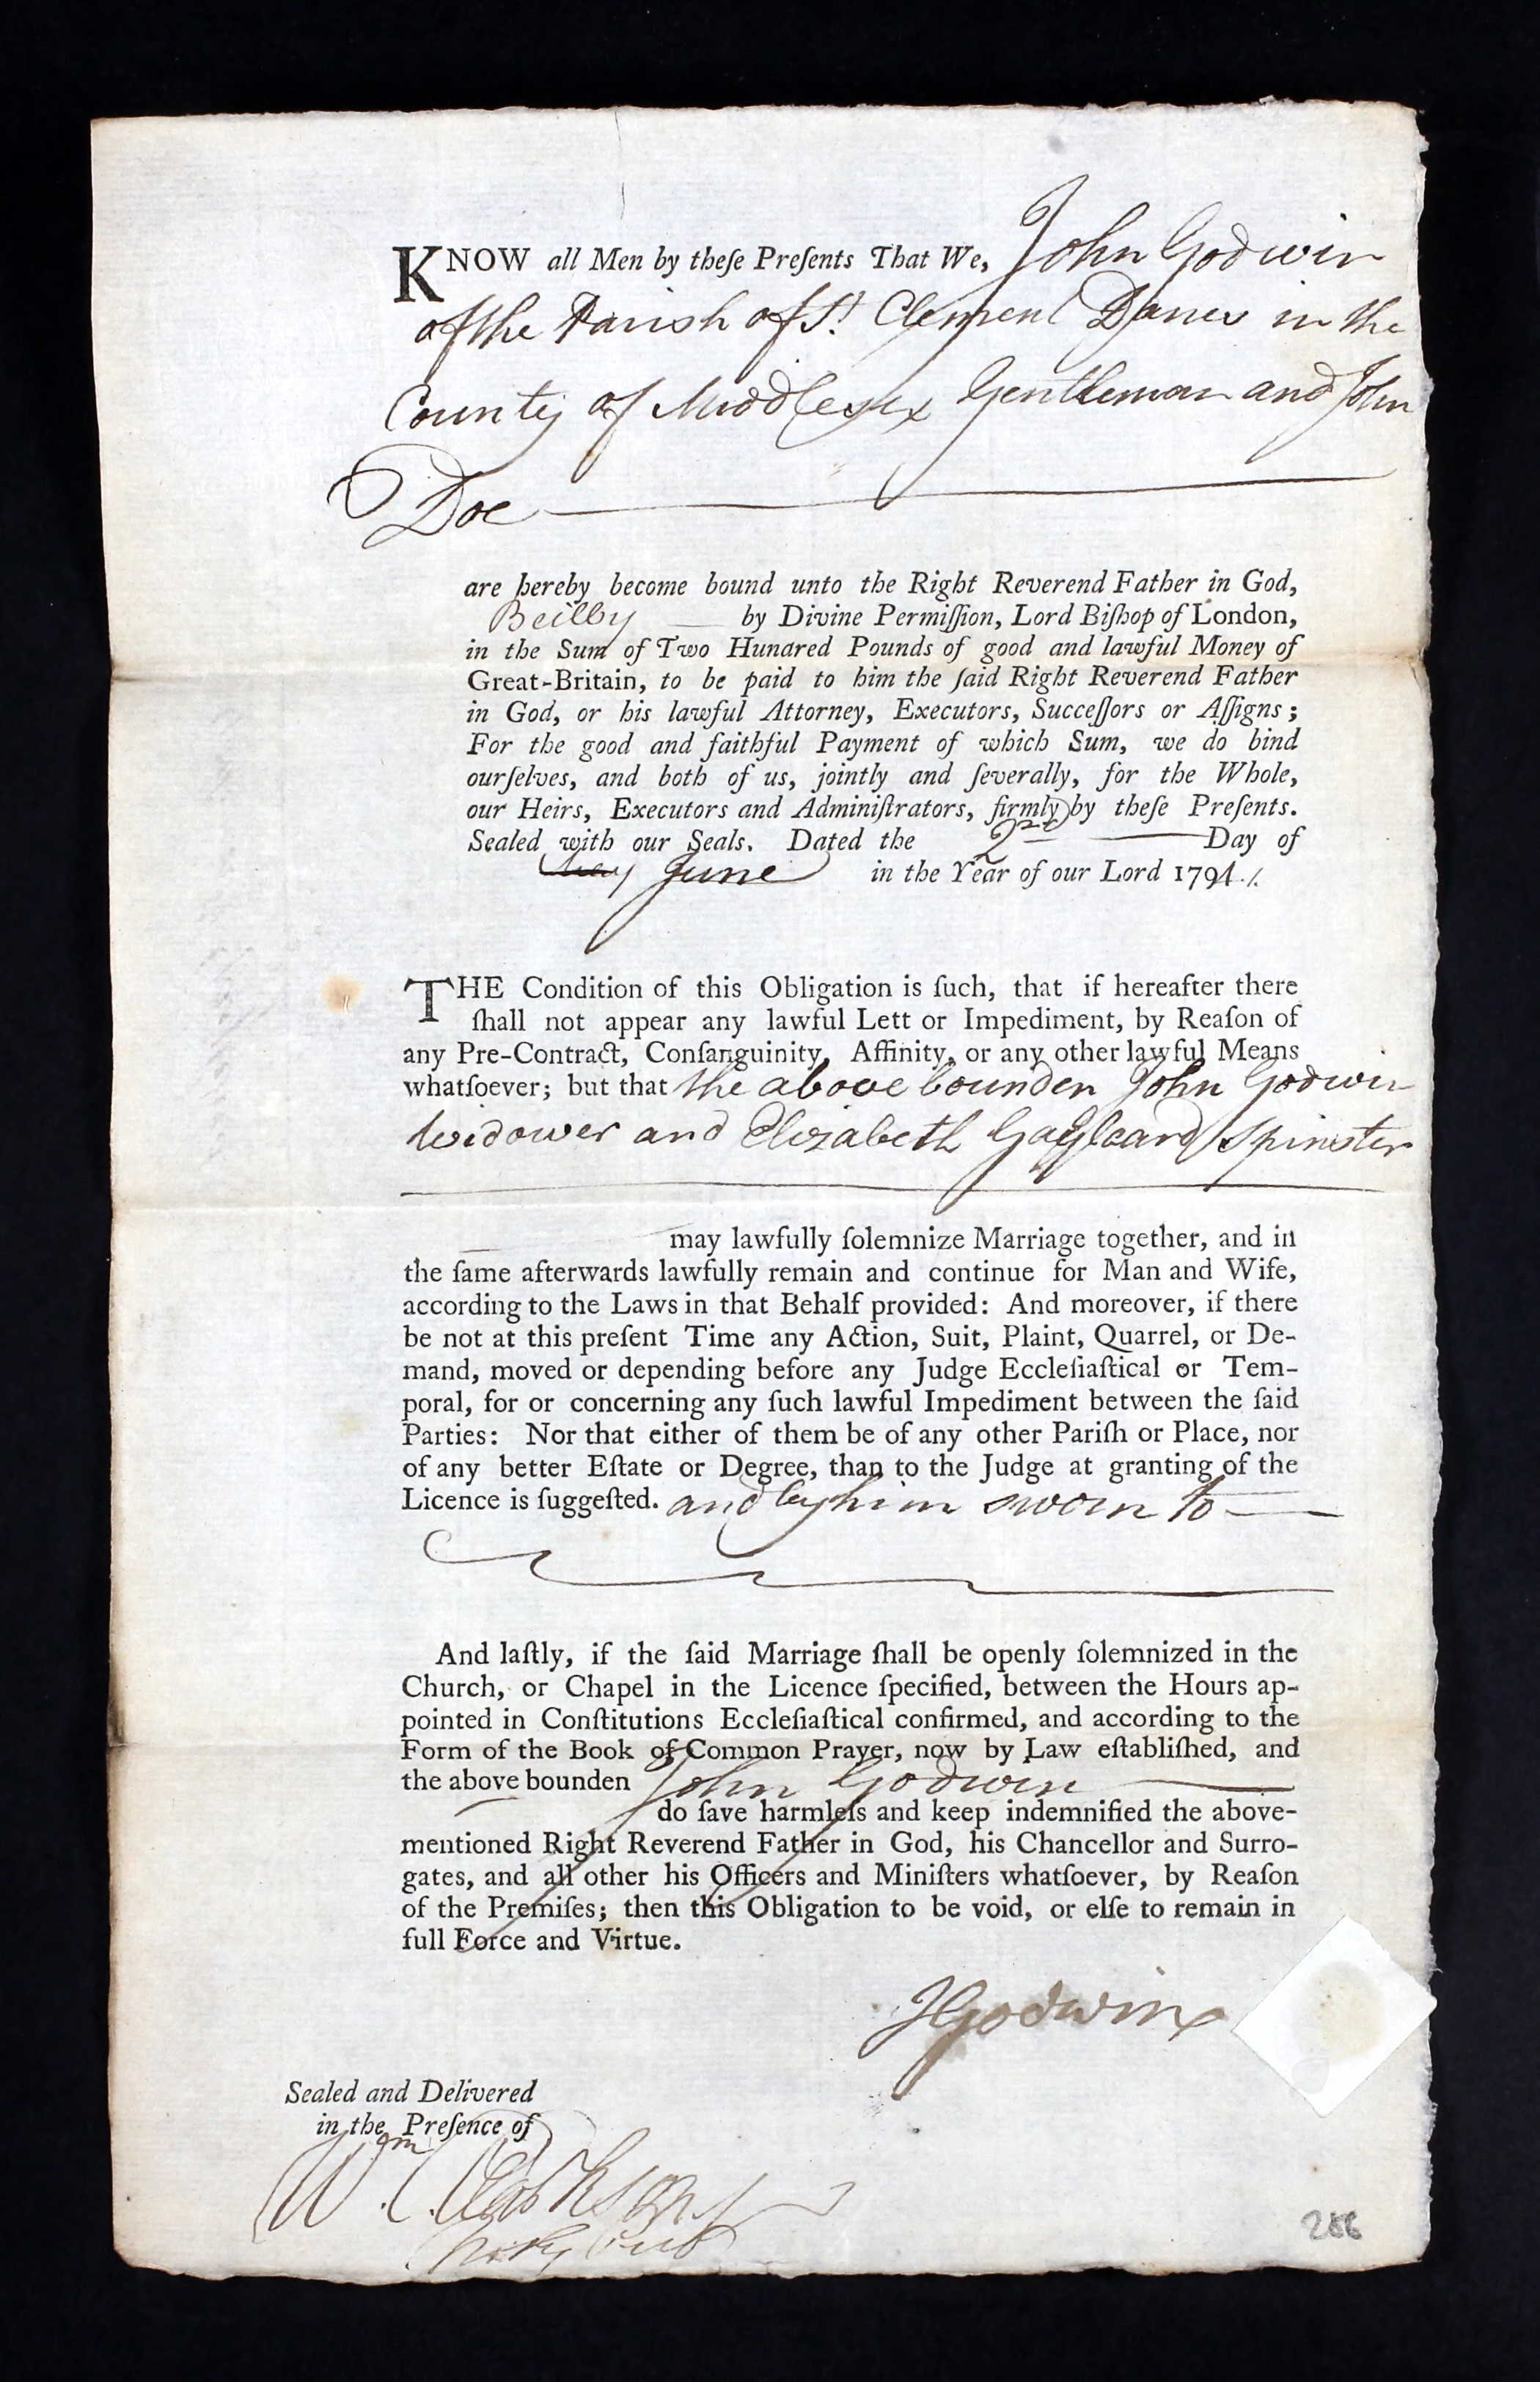 KNOW all Men by theſe Preſents That We, John Godwin
of the Parish of St. Clement Danes in the
County of Middlesex Gentleman and John
Doe
are hereby become bound unto the Right Reverend Father in God,
Beilby by Divine Permiſſion, Lord Biſhop of London,
in the Sum of Two Hundred Pounds of good and lawful Money of
Great-Britain, to be paid to him the ſaid Right Reverend Father
in God, or his lawful Attorney, Executors, Succeſſors or Aſſigns;
For the good and faithful Payment of which Sum, we do bind
ourſelves, and both of us, jointly and ſeverally, for the Whole,
our Heirs, Executors and Adminiſtrators, firmly by theſe Preſents.
Sealed with our Seals. Dated the 2nd Day of
May June in the Year of our Lord 1791.
THE Condition of this Obligation is ſuch, that if hereafter there
ſhall not appear any lawful Lett or Impediment, by Reaſon of
any Pre-Contract, Conſanguinity, Affinity, or any other lawful Means
whatſoever; but that the above bounden John Godwin
Widower and Elizabeth Spinster
may lawfully ſolemnize Marriage together, and in
the ſame afterwards lawfully remain and continue for Man and Wife,
according to the Laws in that Behalf provided: And moreover, if there
be not at this preſent Time any Action, Suit, Plaint, Quarrel, or De-
mand, moved or depending before any Judge Eccleſiaſtical or Tem-
poral, for or concerning any ſuch lawful Impediment between the ſaid
Parties: Nor that either of them be of any other Pariſh or Place, nor
of any better Eſtate or Degree, than to the Judge at granting of the
Licence is ſuggeſted. and by him sworn to
And laſtly, if the ſaid Marriage ſhall be openly ſolemnized in the
Church, or Chapel in the Licence ſpecified, between the Hours ap-
pointed in Conſtitutions Eccleſiaſtical confirmed, and according to the
Form of the Book of Common Prayer, now by Law eſtabliſhed, and
the above bounden John Godwin
do ſave harmleſs and keep indemnified the above-
mentioned Right Reverend Father in God, his Chancellor and Surro-
gates, and all other his Officers and Miniſters whatſoever, by Reaſon
of the Premiſes; then this Obligation to be void, or elſe to remain in
full Force and Virtue.
JGodwin
Sealed and Delivered
in the Preſence of
Wm
Noty Pub